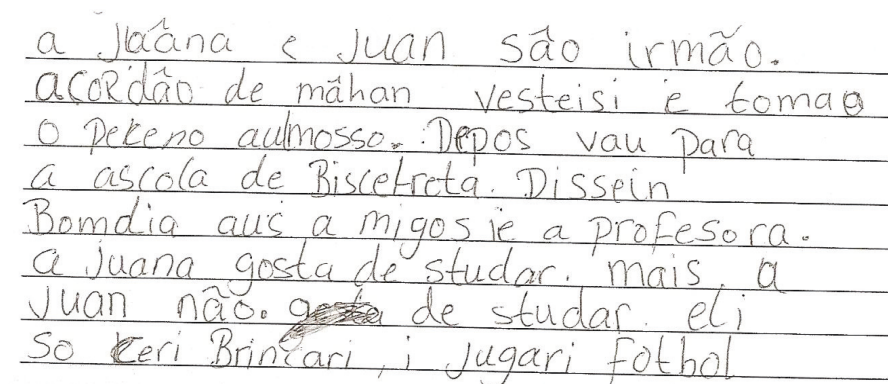 a Juâana e Juan são irmão.
acoRdão de mãhan vesteisi e tomao
o pekeno aulmosso. Depos vau para
a ascola de Biscetreta. Dissein
Bomdia aus a migos ie a profesora.
a Juana gosta de studar. mais, a
Juan não. de studar. eli
So keri Brincari, i Jugari fotbol